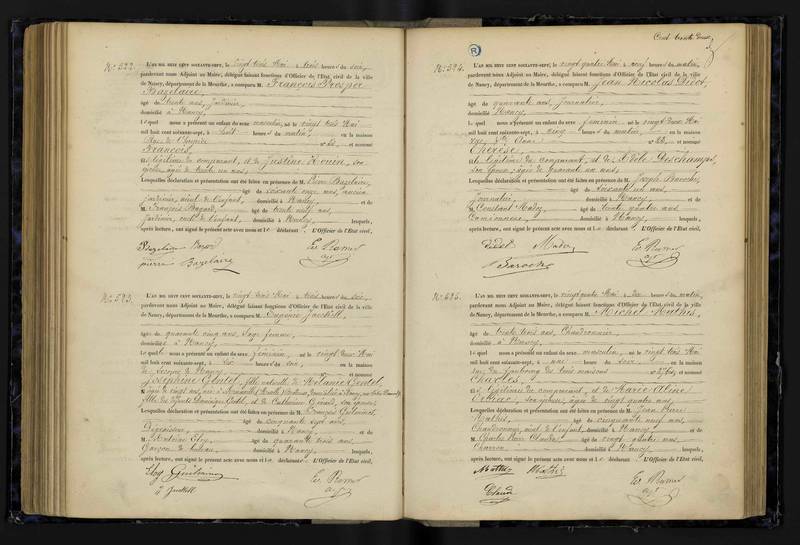 No. 522.
L'AN MIL HUIT CENT SOIXANTE-SEPT, le vingt trois Mai à trois heures du soir,
pardevant nous Adjoint au Maire, délégué faisant fonctions d'Officier de l'État civil de la ville
de Nancy, département de la Meurthe, a comparu M. François Prosper
Bazelaire,
âgé de trente ans, Jardinier,
domicilié à Nancy,
Lequel nous a présenté un enfant du sexe masculin, né le vingt trois Mai
mil huit cent soixante-sept, à huit heures du matin, en la maison
Rue de l'hospice et nommé
François,
fils légitime du comparant, et de Justine Rouin, son
âgée de trente un ans,
Lesquelles déclaration et présentation ont été faites en présence de M. Pierre Bazelaire,
âgé de soixante onze ans, ancien
Jardinier, aïeul de l'enfant, domicilié à Nancy, et de
M. François Bagard, âgé de trente neuf ans,
Jardinier, de l'enfant, domicilié à Nancy, lesquels,
après lecture, ont signé le présent acte avec nous et le déclarant. L'Officier de l'État civil,
Bazelaire
pierre Bazelaire
No. 523.
L'AN MIL HUIT CENT SOIXANTE-SEPT, le vingt trois Mai à trois heures du soir,
pardevant nous Adjoint au Maire, délégué faisant fonctions d'Officier de l'État civil de la ville
de Nancy, département de la Meurthe, a comparu M. Eugénie Jacktell,
âgée de quarante cinq ans, Sage femme,
domiciliée à Nancy,
Laquelle nous a présenté un enfant du sexe féminin, né le vingt deux Mai
mil huit cent soixante-sept, à six heures du soir, en la maison
de Secours de Nancy, et nommé
Joséphine Gentet, fille naturelle de Mélanie Gentet,
âgée de vingt ans,
Lesquelles déclaration et présentation ont été faites en présence de M. François
âgé de cinquante sept ans,
domicilié à Nancy, et de
M. Antoine Eloy, âgé de quarante trois ans,
Garçon de bureau, domicilié à Nancy, lesquels,
après lecture, ont signé le présent acte avec nous et la déclarante. L'Officier de l'État civil,
Eloy
Cent trente deux
R
No. 524.
L'AN MIL HUIT CENT SOIXANTE-SEPT, le vingt quatre Mai à neuf heures du matin,
pardevant nous Adjoint au Maire, délégué faisant fonctions d'Officier de l'État civil de la ville
de Nancy, département de la Meurthe, a comparu M. Jean Nicolas Didot,
âgé de quarante ans, Journalier,
domicilié à Nancy,
Lequel nous a présenté un enfant du sexe féminin, né le vingt deux Mai
mil huit cent soixante-sept, à cinq heures du matin, en la maison
rue Ste Anne et nommé
Thérèse,
fille légitime du comparant, et de Adèle Deschamps,
son épouse, âgée de quarante un ans,
Lesquelles déclaration et présentation ont été faites en présence de M. Joseph Baroche,
âgé de soixante un ans,
Journalier, domicilié à Nancy, et de
M. Constant âgé de trente quatre ans,
Camionneur, domicilié à Nancy, lesquels,
après lecture, ont signé le présent acte avec nous et le déclarant. L'Officier de l'État civil,
Didot
Baroche
No. 525.
L'AN MIL HUIT CENT SOIXANTE-SEPT, le vingt quatre Mai à dix heures du matin,
pardevant nous Adjoint au Maire, délégué faisant fonctions d'Officier de l'État civil de la ville
de Nancy, département de la Meurthe, a comparu M. Michel Mathis,
âgé de trente trois ans, Chaudronnier,
domicilié à Nancy,
Lequel nous a présenté un enfant du sexe masculin, né le vingt trois Mai
mil huit cent soixante-sept, à heures du soir, en la maison
rue du faubourg des trois maisons et nommé
Charles,
fils légitime du comparant, et de Marie
son épouse, âgée de vingt quatre ans,
Lesquelles déclaration et présentation ont été faites en présence de M. Jean Pierre
Mathis, âgé de cinquante neuf ans,
Chaudronnier, aïeul de l'enfant, domicilié à Nancy, et de
M. Charles Pierre Claude, âgé de vingt quatre ans,
Charron, domicilié à Nancy, lesquels,
après lecture, ont signé le présent acte avec nous et le déclarant. L'Officier de l'État civil,
Mathis Mathis
Claude